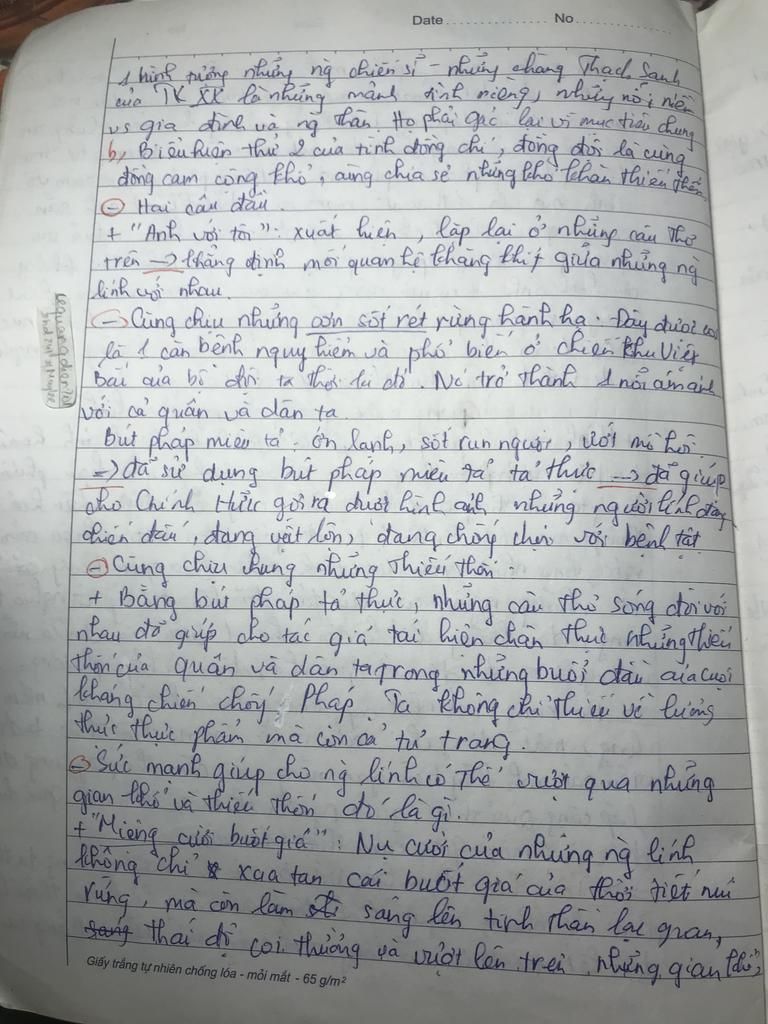 Date.................. No......................
1 hình tượng những ng chiến sĩ - những chàng Thạch Sanh
của TK XX là những mảnh tình riêng, những nỗi niềm
vs gia đình và ng thân. Họ phải gác lại vì mục tiêu chung
b, Biểu hiện thứ 2 của tình đồng chí, đồng đội là cùng
đồng cam cộng khổ, cùng chia sẻ những khó khăn thiếu thốn.
- Hai câu đầu.
+ "Anh với tôi": xuất hiện, lặp lại ở những câu thơ
trên -> khẳng định mối quan hệ khăng khít giữa những ng
lính với nhau.
- Cùng chịu những cơn sốt rét rừng hành hạ. Đây được coi
là 1 căn bệnh nguy hiểm và phổ biến ở chiến khu Việt
Bắc của bộ đội ta thời kì đó. Nó trở thành 1 nỗi ám ảnh
với cả quân và dân ta.
Bút pháp miêu tả: ớn lạnh, sốt run người, ướt mồ hôi.
-> đã sử dụng bút pháp miêu tả tả thực -> đã giúp
cho Chính Hữu gợi ra dưới hình ảnh những người lính đang
chiến đấu, đang vật lộn, đang chống chọi với bệnh tật
- Cùng chịu chung những thiếu thốn.
+ Bằng bút pháp tả thực, những câu thơ sóng đôi với
nhau đó giúp cho tác giả tái hiện chân thực những thiếu
thốn của quân và dân ta trong những buổi đầu của cuộc
kháng chiến chống Pháp. Ta không chỉ thiếu về lương
thực thực phẩm mà còn cả tư trang.
- Sức mạnh giúp cho ng lính có thể vượt qua những
gian khó và thiếu thốn đó là gì.
+ "Miệng cười buốt giá": Nụ cười của những ng lính
không chỉ xua tan cái buốt giá của thời tiết núi
rừng, mà còn làm sáng lên tinh thần lạc quan,
thái độ coi thường và vượt lên trên những gian khó
Giấy trắng tự nhiên chống lóa - mỏi mắt - 65 g/m²